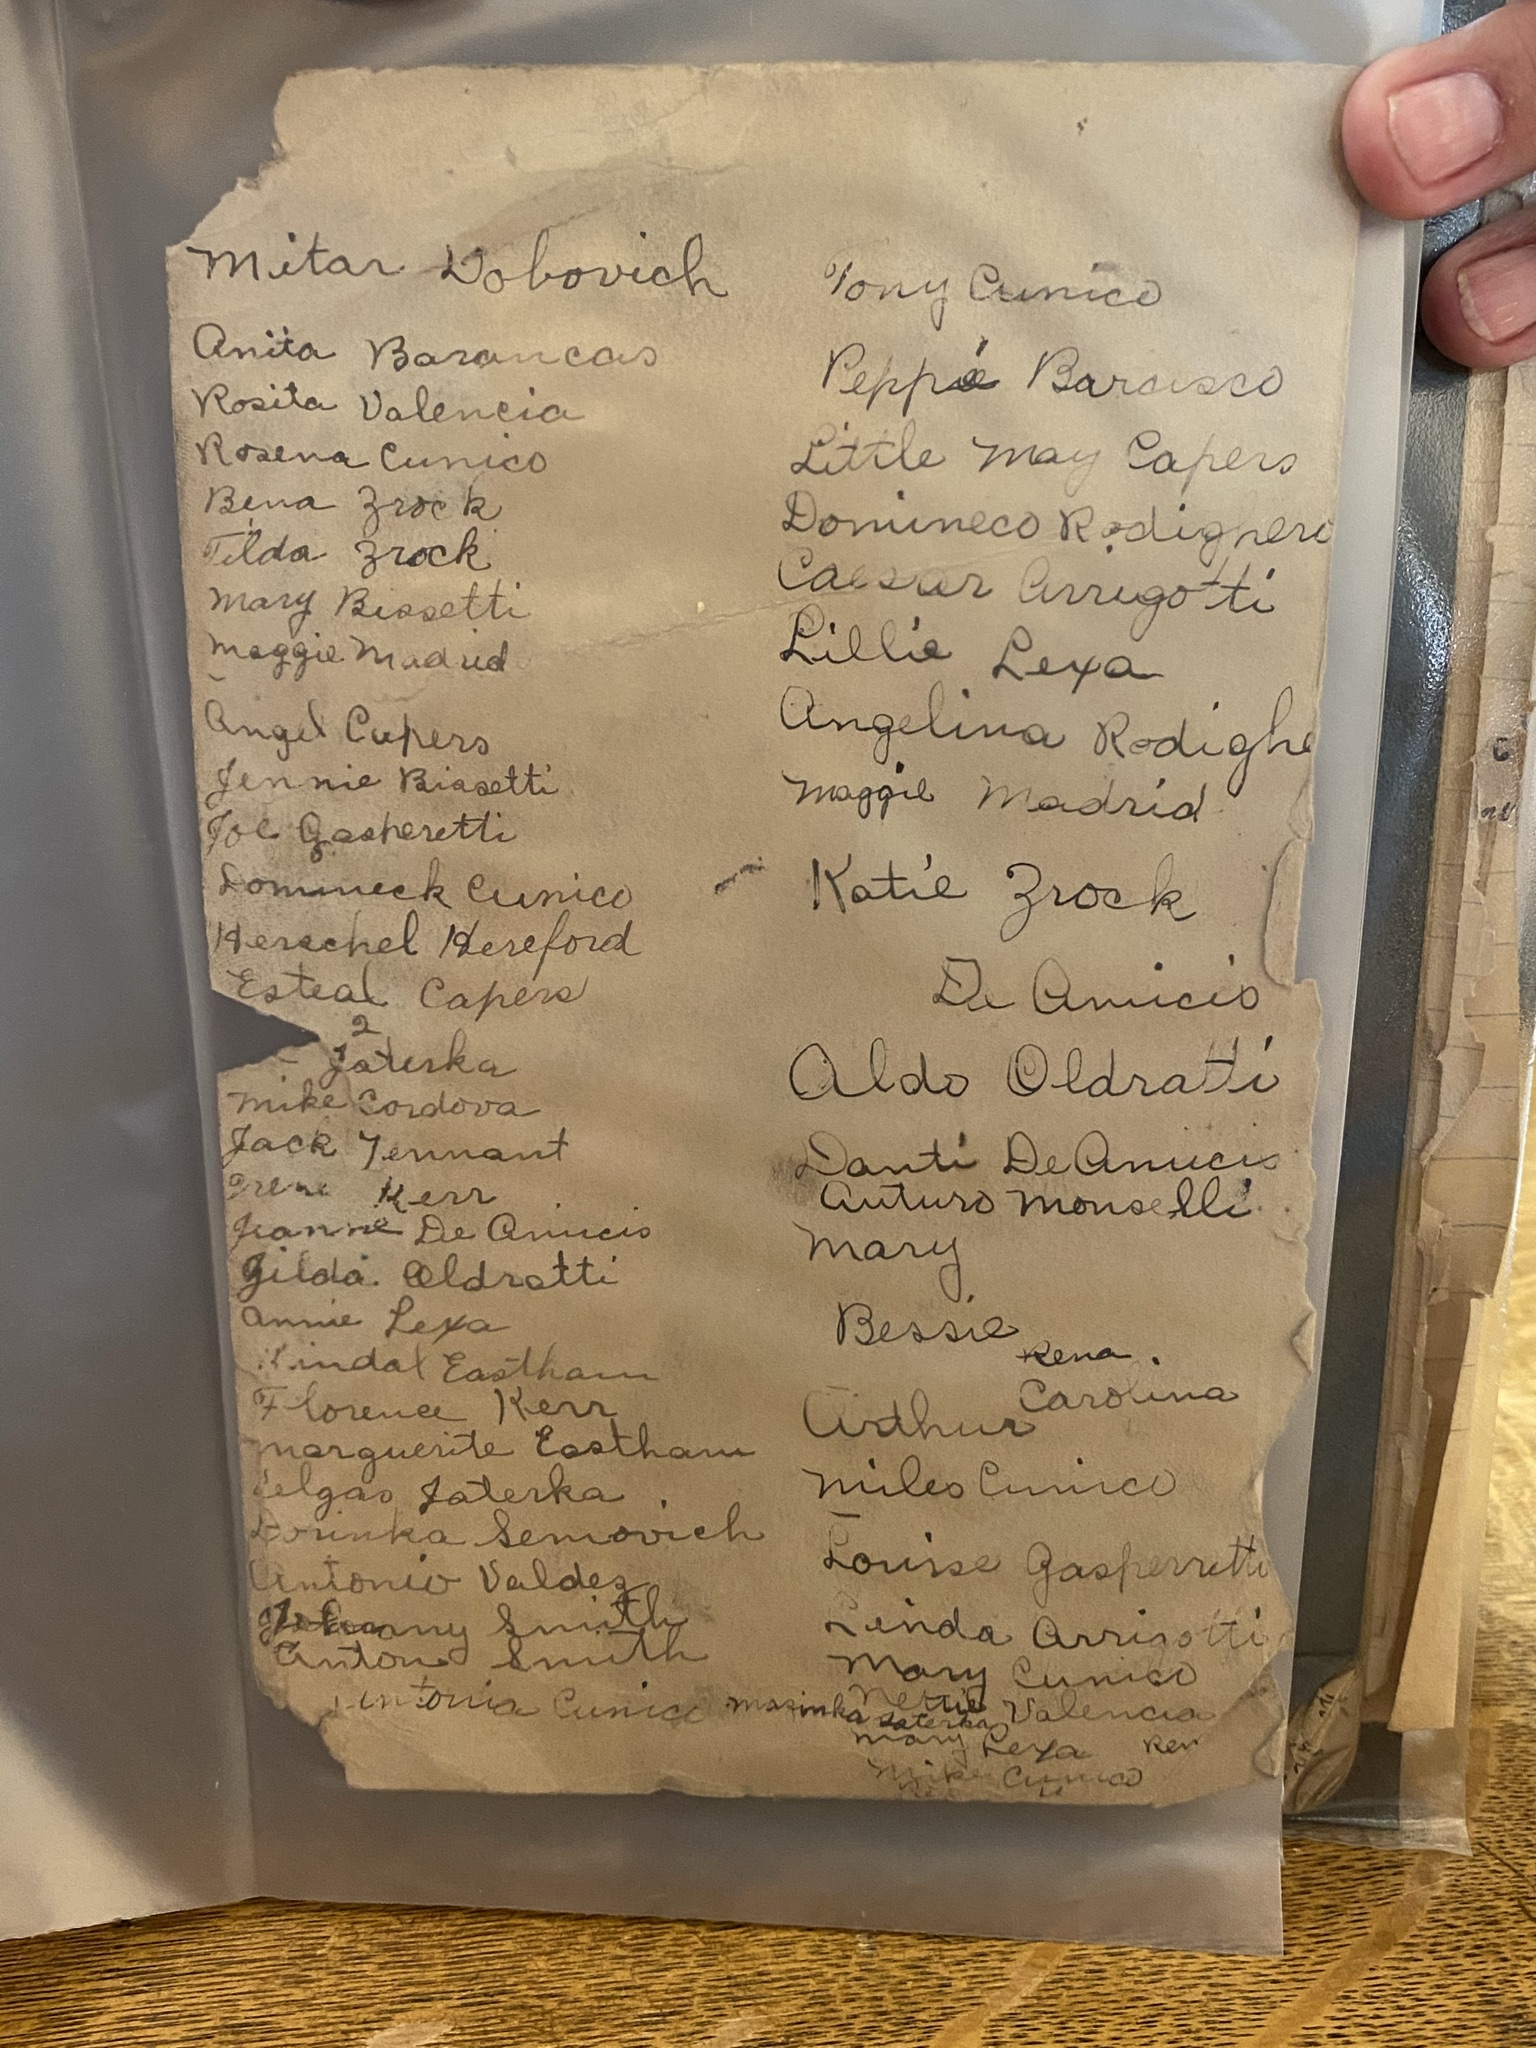 Mitar Vobovich
Anita Barancas
Rosita Valencia
Rosena Cunico
Bena Zrock
Tilda Zrock
Mary Bissetti
Maggie Madrid
Angel Capers
Jennie Bissetti
Joe Gasperetti
Domineck Cunico
Herschel Hereford
Esteal Capers
2
Jaterka
Mike Cordova
Jack Tennant
Irene Kerr
Jeanne De Amicis
Gilda Oldratti
Annie Lexa
Kindal Eastham
Florence Kerr
Marguerite Eastham
elgas Jaterka
Dorinka Semovich
Antonio Valdez
Johnny Smith
Anton Smith
Antonia Cunico
Tony Cunico
Peppie Barcisco
Little May Capers
Domineco Rodighero
Caesar Arrigotti
Lillie Lexa
Angelina Rodighe
Maggie Madrid
Katie Zrock
De Amicis
Aldo Oldratti
Danti DeAmicis
Arturo Monselli
Mary
Bessie
Rena
Carolina
Arthur
Miles Cunico
Louise Gasperretti
Linda Arrigotti
Mary Cunico
Nettie Valencia
Masinka Jaterka
Mary Lexa
Ken
Mike Cunico